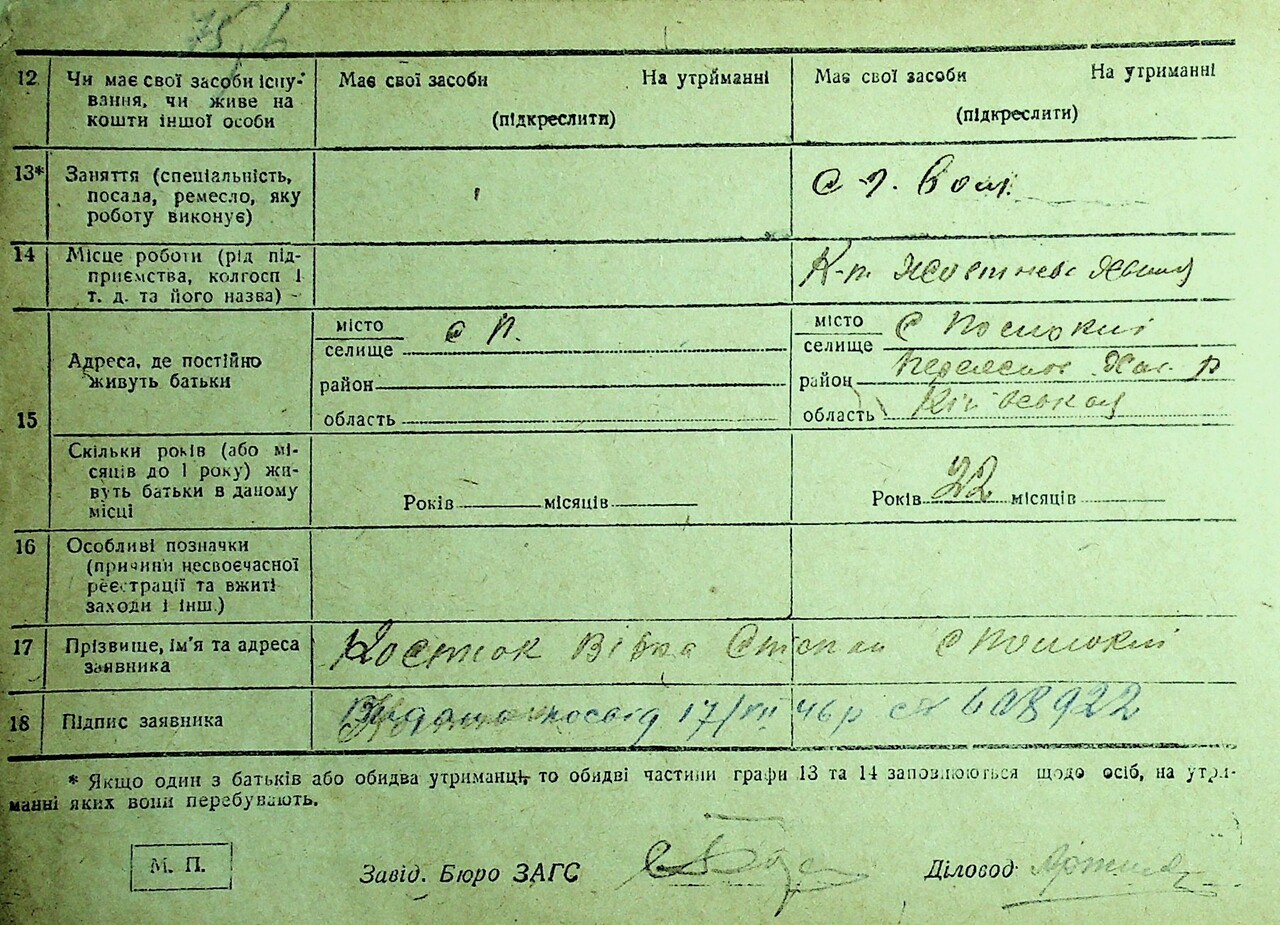 12 Чи має свої засоби існу-
вання, чи живе на
кошти іншої особи
Має свої засоби На утриманні
(підкреслити)
Має свої засоби На утриманні
(підкреслити)
13* Заняття (спеціальність,
посада, ремесло, яку
роботу виконує)
14 Місце роботи (рід під-
приємства, колгосп і
т. д. та його назва)
К-п.
15 Адреса, де постійно
живуть батьки
місто
селище
район
область
місто С
селище
район
область Київська
Скільки років (або мі-
сяців до 1 року) жи-
вуть батьки в даному
місці
Років місяців
Років 22 місяців
16 Особливі позначки
(причини несвоєчасної
реєстрації та вжиті
заходи і інш.)
17 Прізвище, ім'я та адреса
заявника
Костюк
18 Підпис заявника
посвід 17/VII 46 р 608922
* Якщо один з батьків або обидва утриманці, то обидві частини графи 13 та 14 заповнюються щодо осіб, на утри-
манні яких вони перебувають.
М. П.
Завід. Бюро ЗАГС
Діловод